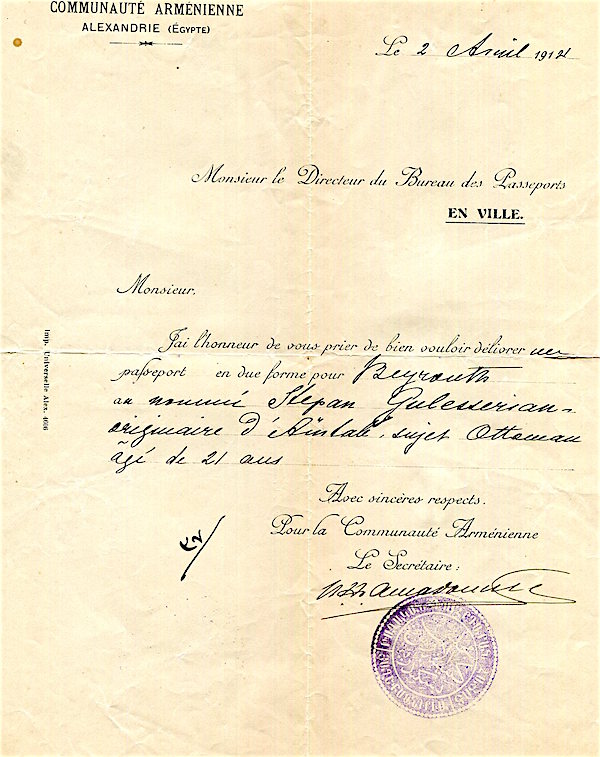 COMMUNAUTÉ ARMÉNIENNE
ALEXANDRIE (ÉGYPTE)
Le 2 Avril 1912
Monsieur le Directeur du Bureau des Passeports
EN VILLE.
Monsieur.
J'ai l'honneur de vous prier de bien vouloir délivrer un
passeport en due forme pour Beyrouth
au nommé Stépan Gulesserian
originaire d'Aïntab, sujet Ottoman
âgé de 21 ans
Avec sincères respects.
Pour la Communauté Arménienne
Le Secrétaire:
Imp. Universelle Alex. 4606